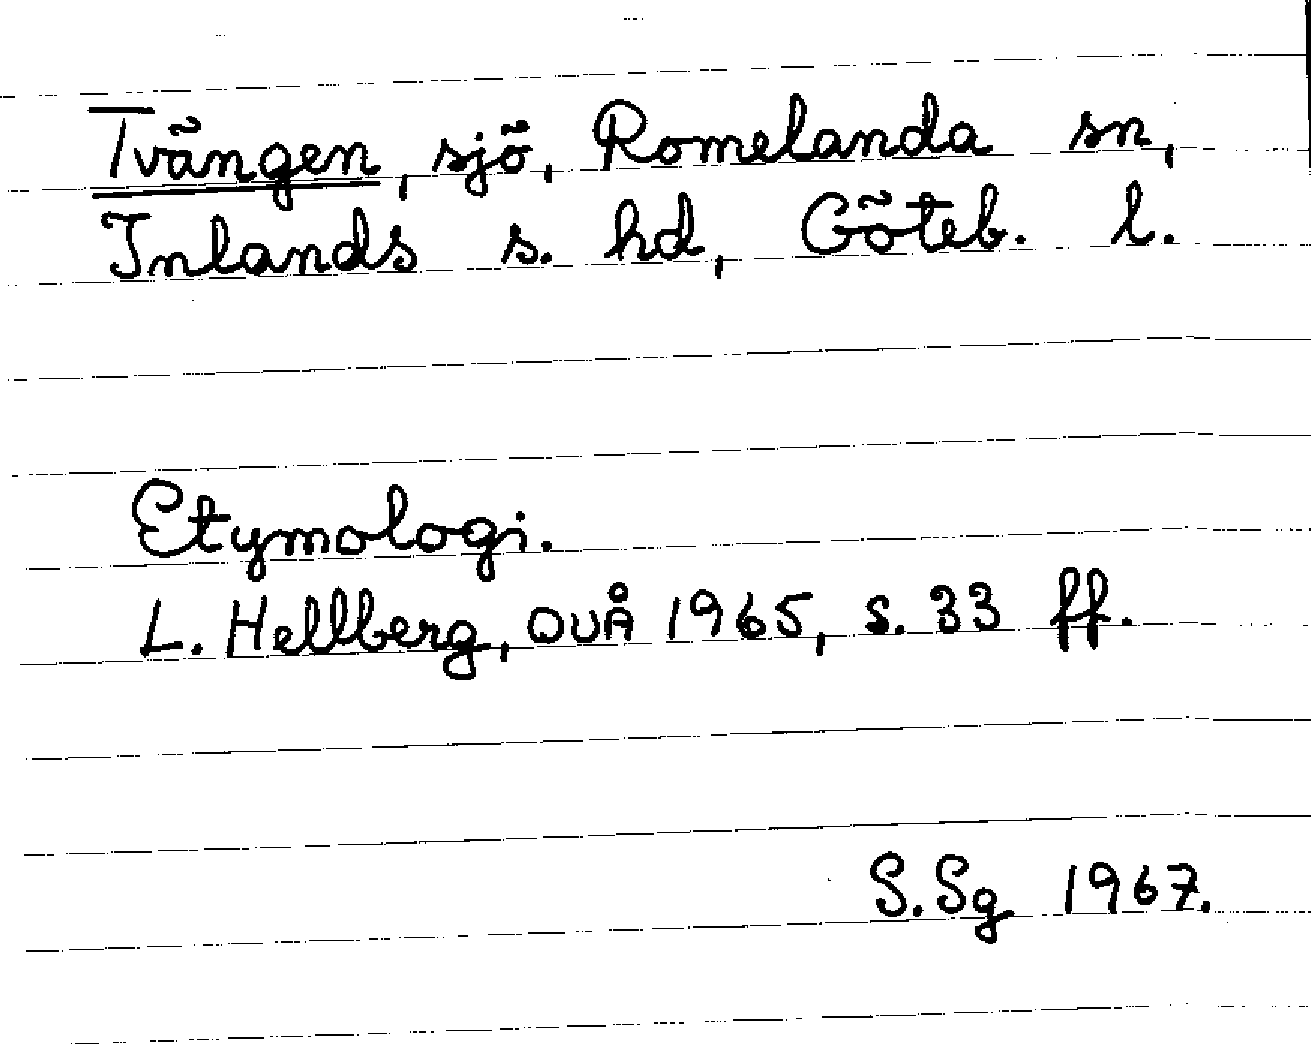 Tvängen, sjö, Romelanda sn,
Inlands s. hd, Göteb. l.
Etymologi.
L. Hellberg, OUÅ 1965, s. 33 ff.
S.Sg 1967.